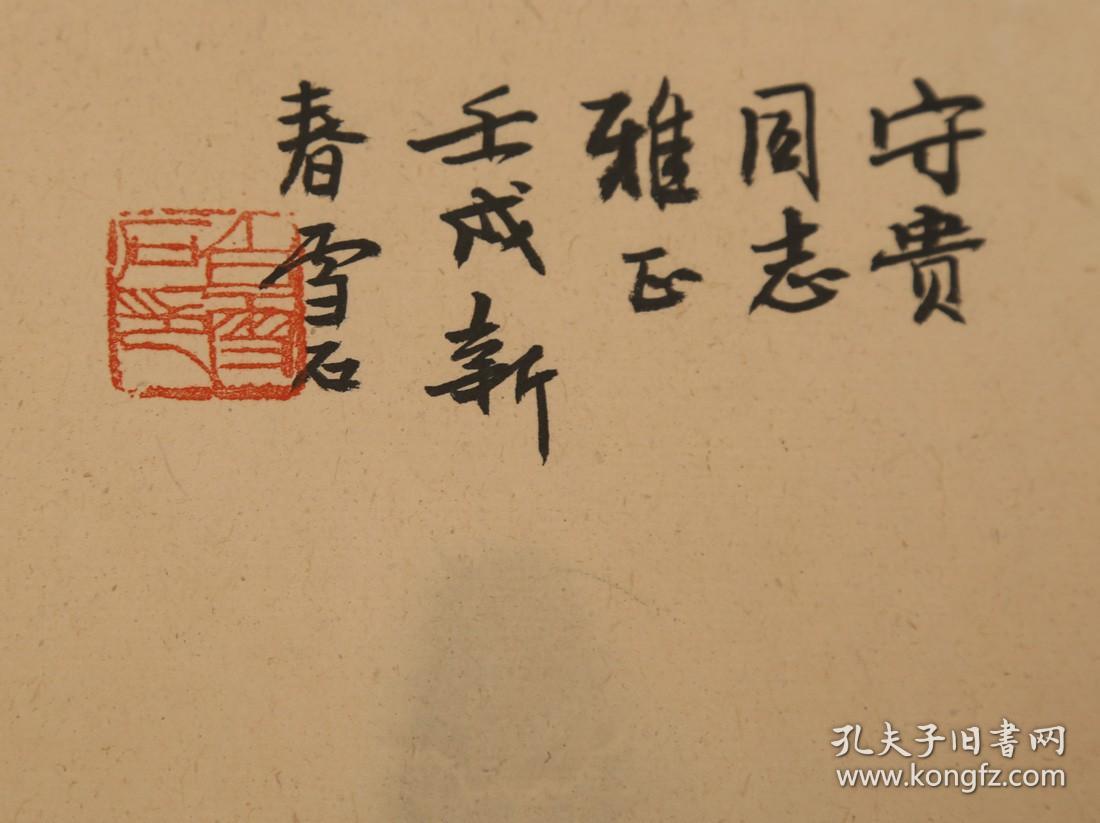 守贵
同志
雅正
壬戌新
春雪石
孔夫子旧書网
www.kongfz.com